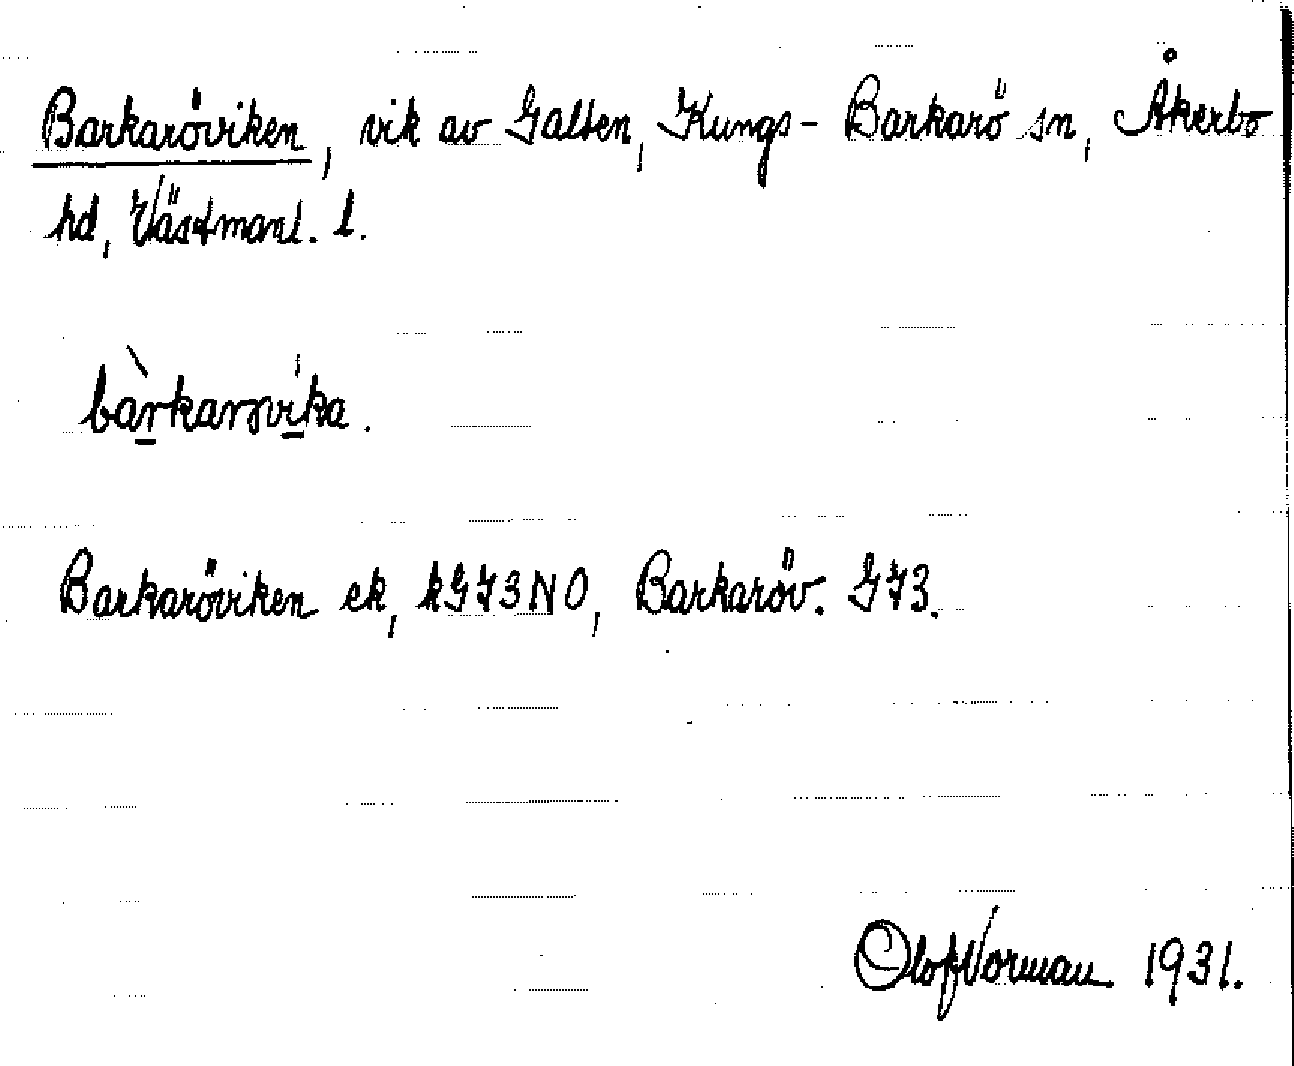 Barkaröviken, vik av Galten, Kungs-Barkarö sn, Åkerbo
hd, Västmanl. l.
bàrkarsvíka.
Barkaröviken ek, kGJ3NO, Barkaröv. GJ3.
Olof Norman 1931.